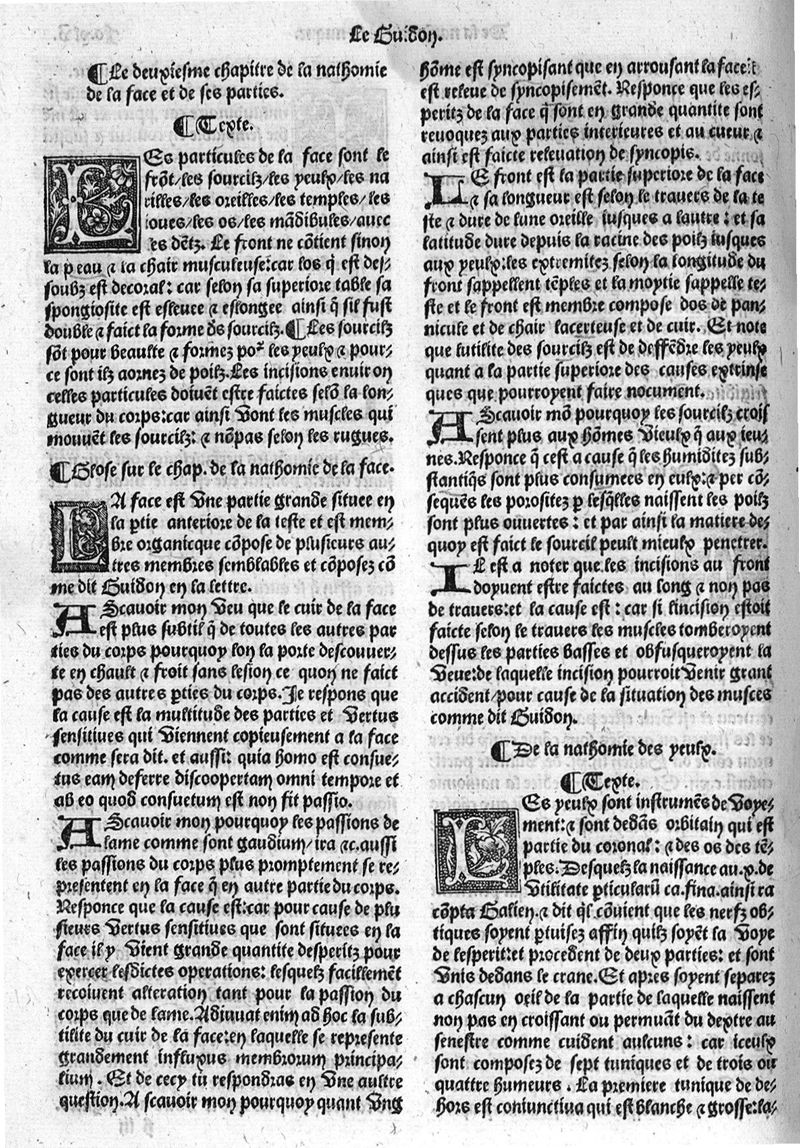 Le Guidon.
¶Le deuxiesme chapitre de la nathomie
de la face et de ses parties.
¶Texte.
LEs particules de la face sont le
frõt/les sourcilz/les yeulx/les na
rilles/les oreilles/les temples/les
ioues/les os/les mãdibules/auec
les dẽtz. Le front ne cõtient sinon
la peau ⁊ la chair musculeuse:car los q̃ est des/
soubz est decoral: car selon sa superiore table sa
spongiosite est esleuee ⁊ eslongee ainsi q̃ sil fust
double ⁊ faict la forme des sourcilz.¶Les sourcilz
sõt pour beaulte ⁊ formez por les yeulx ⁊ pour/
ce sont ilz aornez de poilz.Les incisions enuiron
celles particules doiuẽt estre faictes selõ la lon/
gueur du corps:car ainsi vont les muscles qui
mouuẽt les sourcilz: ⁊ nõpas selon les rugues.
¶Glose sur le chap. de la nathomie de la face.
LA face est vne partie grande situee en
la ptie anteriore de la teste et est mem/
bre organicque cõpose de plusieurs au/
tres membres semblables et cõposez cõ
me dit Guidon en la lettre.
AScauoir mon veu que le cuir de la face
est plus subtil q̃ de toutes les autres par
ties du corps pourquoy lon la porte descouuer/
te en chault ⁊ froit sans lesion ce quon ne faict
pas des autres pties du corps.Je respons que
la cause est la multitude des parties et vertus
sensitiues qui viennent copieusement a la face
comme sera dit. et aussi: quia homo est consue/
tus eam deferre discoopertam omni tempore et
ab eo quod consuetum est non fit passio.
AScauoir mon pourquoy les passions de
lame comme sont gaudium/ira ⁊c.aussi
les passions du corps plus promptement se re/
presentent en la face q̃ en autre partie du corps.
Responce que la cause est:car pour cause de plu
sieurs vertus sensitiues que sont situees en la
face il y vient grande quantite desperitz pour
exercer lesdictes operations: lesquelz facillemẽt
recoiuent alteration tant pour la passion du
corps que de lame.Adiuuat enim ad hoc la sub/
tilite du cuir de la face:en laquelle se represente
grandement influxus membrorum principa/
lium. Et de cecy tu respondras en vne aultre
question.A scauoir mon pourquoy quant vng
hõme est syncopisant que en arrousant la face:il
est releue de syncopisemẽt. Responce que les es/
peritz de la face q̃ sont en grande quantite sont
reuoquez aux parties interieures et au cueur ⁊
ainsi est faicte releuation de syncopis.
LE front est la partie superiore de la face
⁊ sa longueur est selon le trauers de la te
ste ⁊ dure de lune oreille iusques a lautre: et sa
latitude dure depuis la racine des poilz iusques
aux yeulx:les extremitez selon la longitude du
front sappellent tẽples et la moytie sappelle te/
ste et le front est membre compose dos de pan/
nicule et de chair lacerteuse et de cuir. Et note
que lutilite des sourcilz est de deffẽdre les yeulx
quant a la partie superiore des causes extrinse
ques que pourroyent faire nocument.
AScauoir mõ pourquoy les sourcilz crois
sent plus aux hõmes vieulx q̃ aux ieu/
nes.Responce q̃ cest a cause q̃ les humiditez sub/
stantiq̃s sont plus consumees en eulx:⁊ per cõ/
sequẽs les porositez p lesq̃lles naissent les poilz
sont plus ouuertes: et par ainsi la matiere de/
quoy est faict le sourcil peult mieulx penetrer.
IL est a noter que les incisions au front
doyuent estre faictes au long ⁊ non pas
de trauers:et la cause est: car si lincision estoit
faicte selon le trauers les muscles tomberoyent
dessus les parties basses et obfusqueroyent la
veue:de laquelle incision pourroit venir grant
accident/pour cause de la situation des musces
comme dit Guidon.
¶De la nathomie des yeulx.
¶Texte.
LEs yeulx sont instrumẽs de voye/
ment:⁊ sont dedãs orbitain qui est
partie du coronal: ⁊ des os des tẽ/
ples.Desquelz la naissance au.x.de
vtilitate pticularũ ca.fina.ainsi ra
cõpta Galien.⁊ dit ql cõuient que les nerfz ob/
tiques soyent ptuisez affin quilz soyẽt la voye
de lesperit:et procedent de deux parties: et sont
vnis dedans le crane.Et apres soyent separez
a chascun oeil de la partie de laquelle naissent
non pas en croissant ou permuãt du dextre au
senestre comme cuident aulcuns: car iceulx
sont composez de sept tuniques et de trois ou
quattre humeurs. La premiere tunique de de/
hors est coniunctiua qui est blanche ⁊ grosse:la/